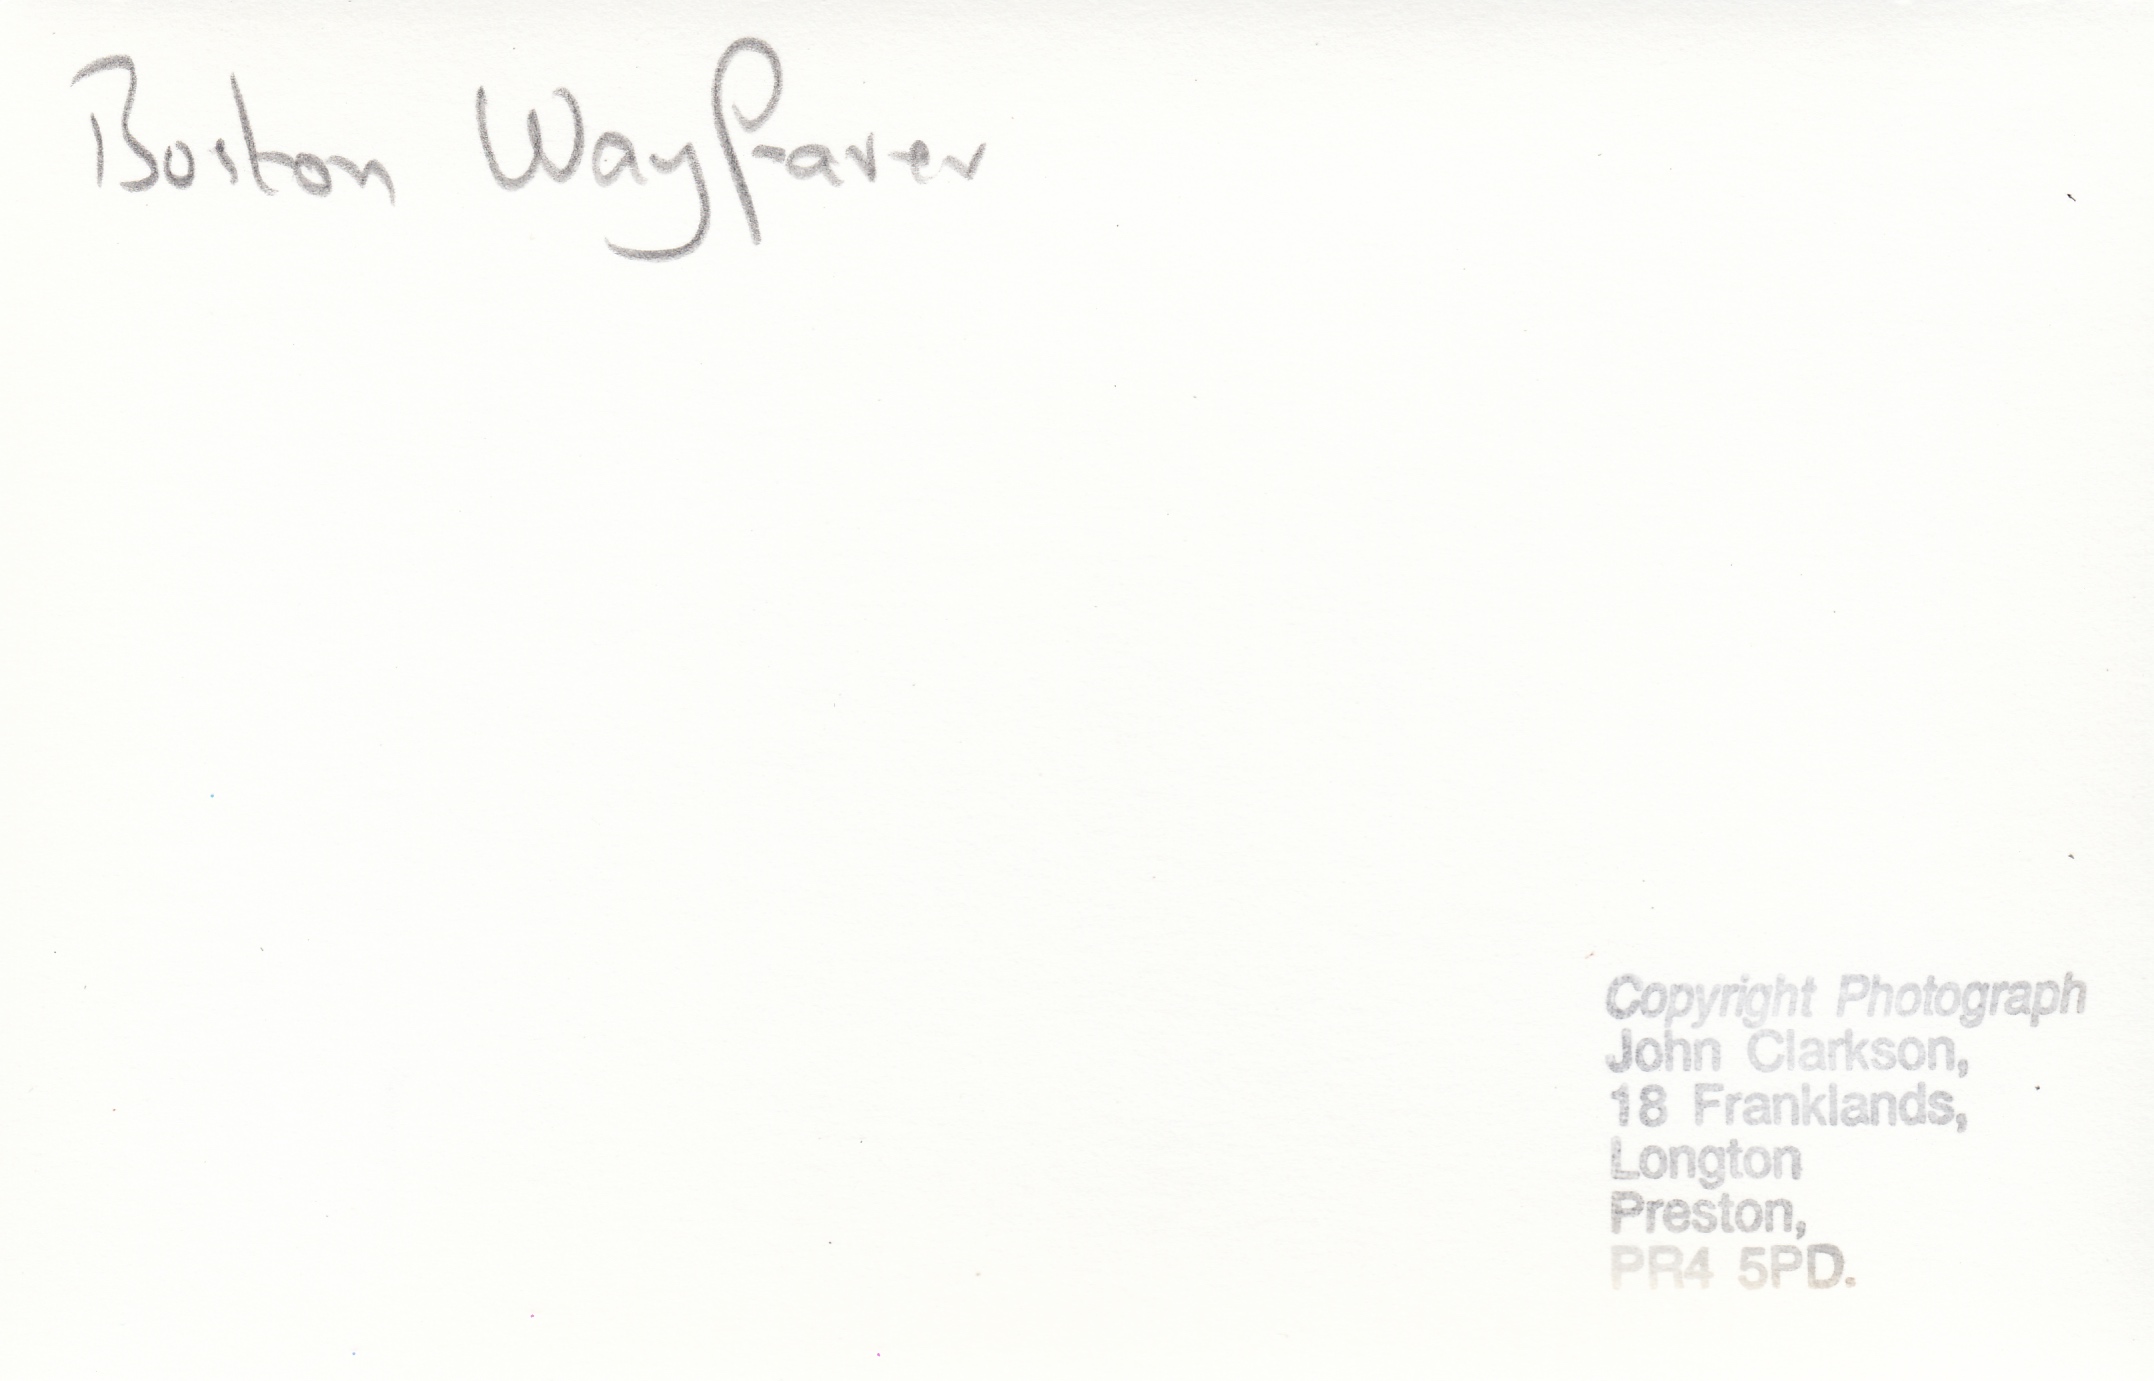 Boston Wayfarer
Copyright Photograph
John Clarkson,
18 Franklands,
Longton
Preston,
PR4 5PD.